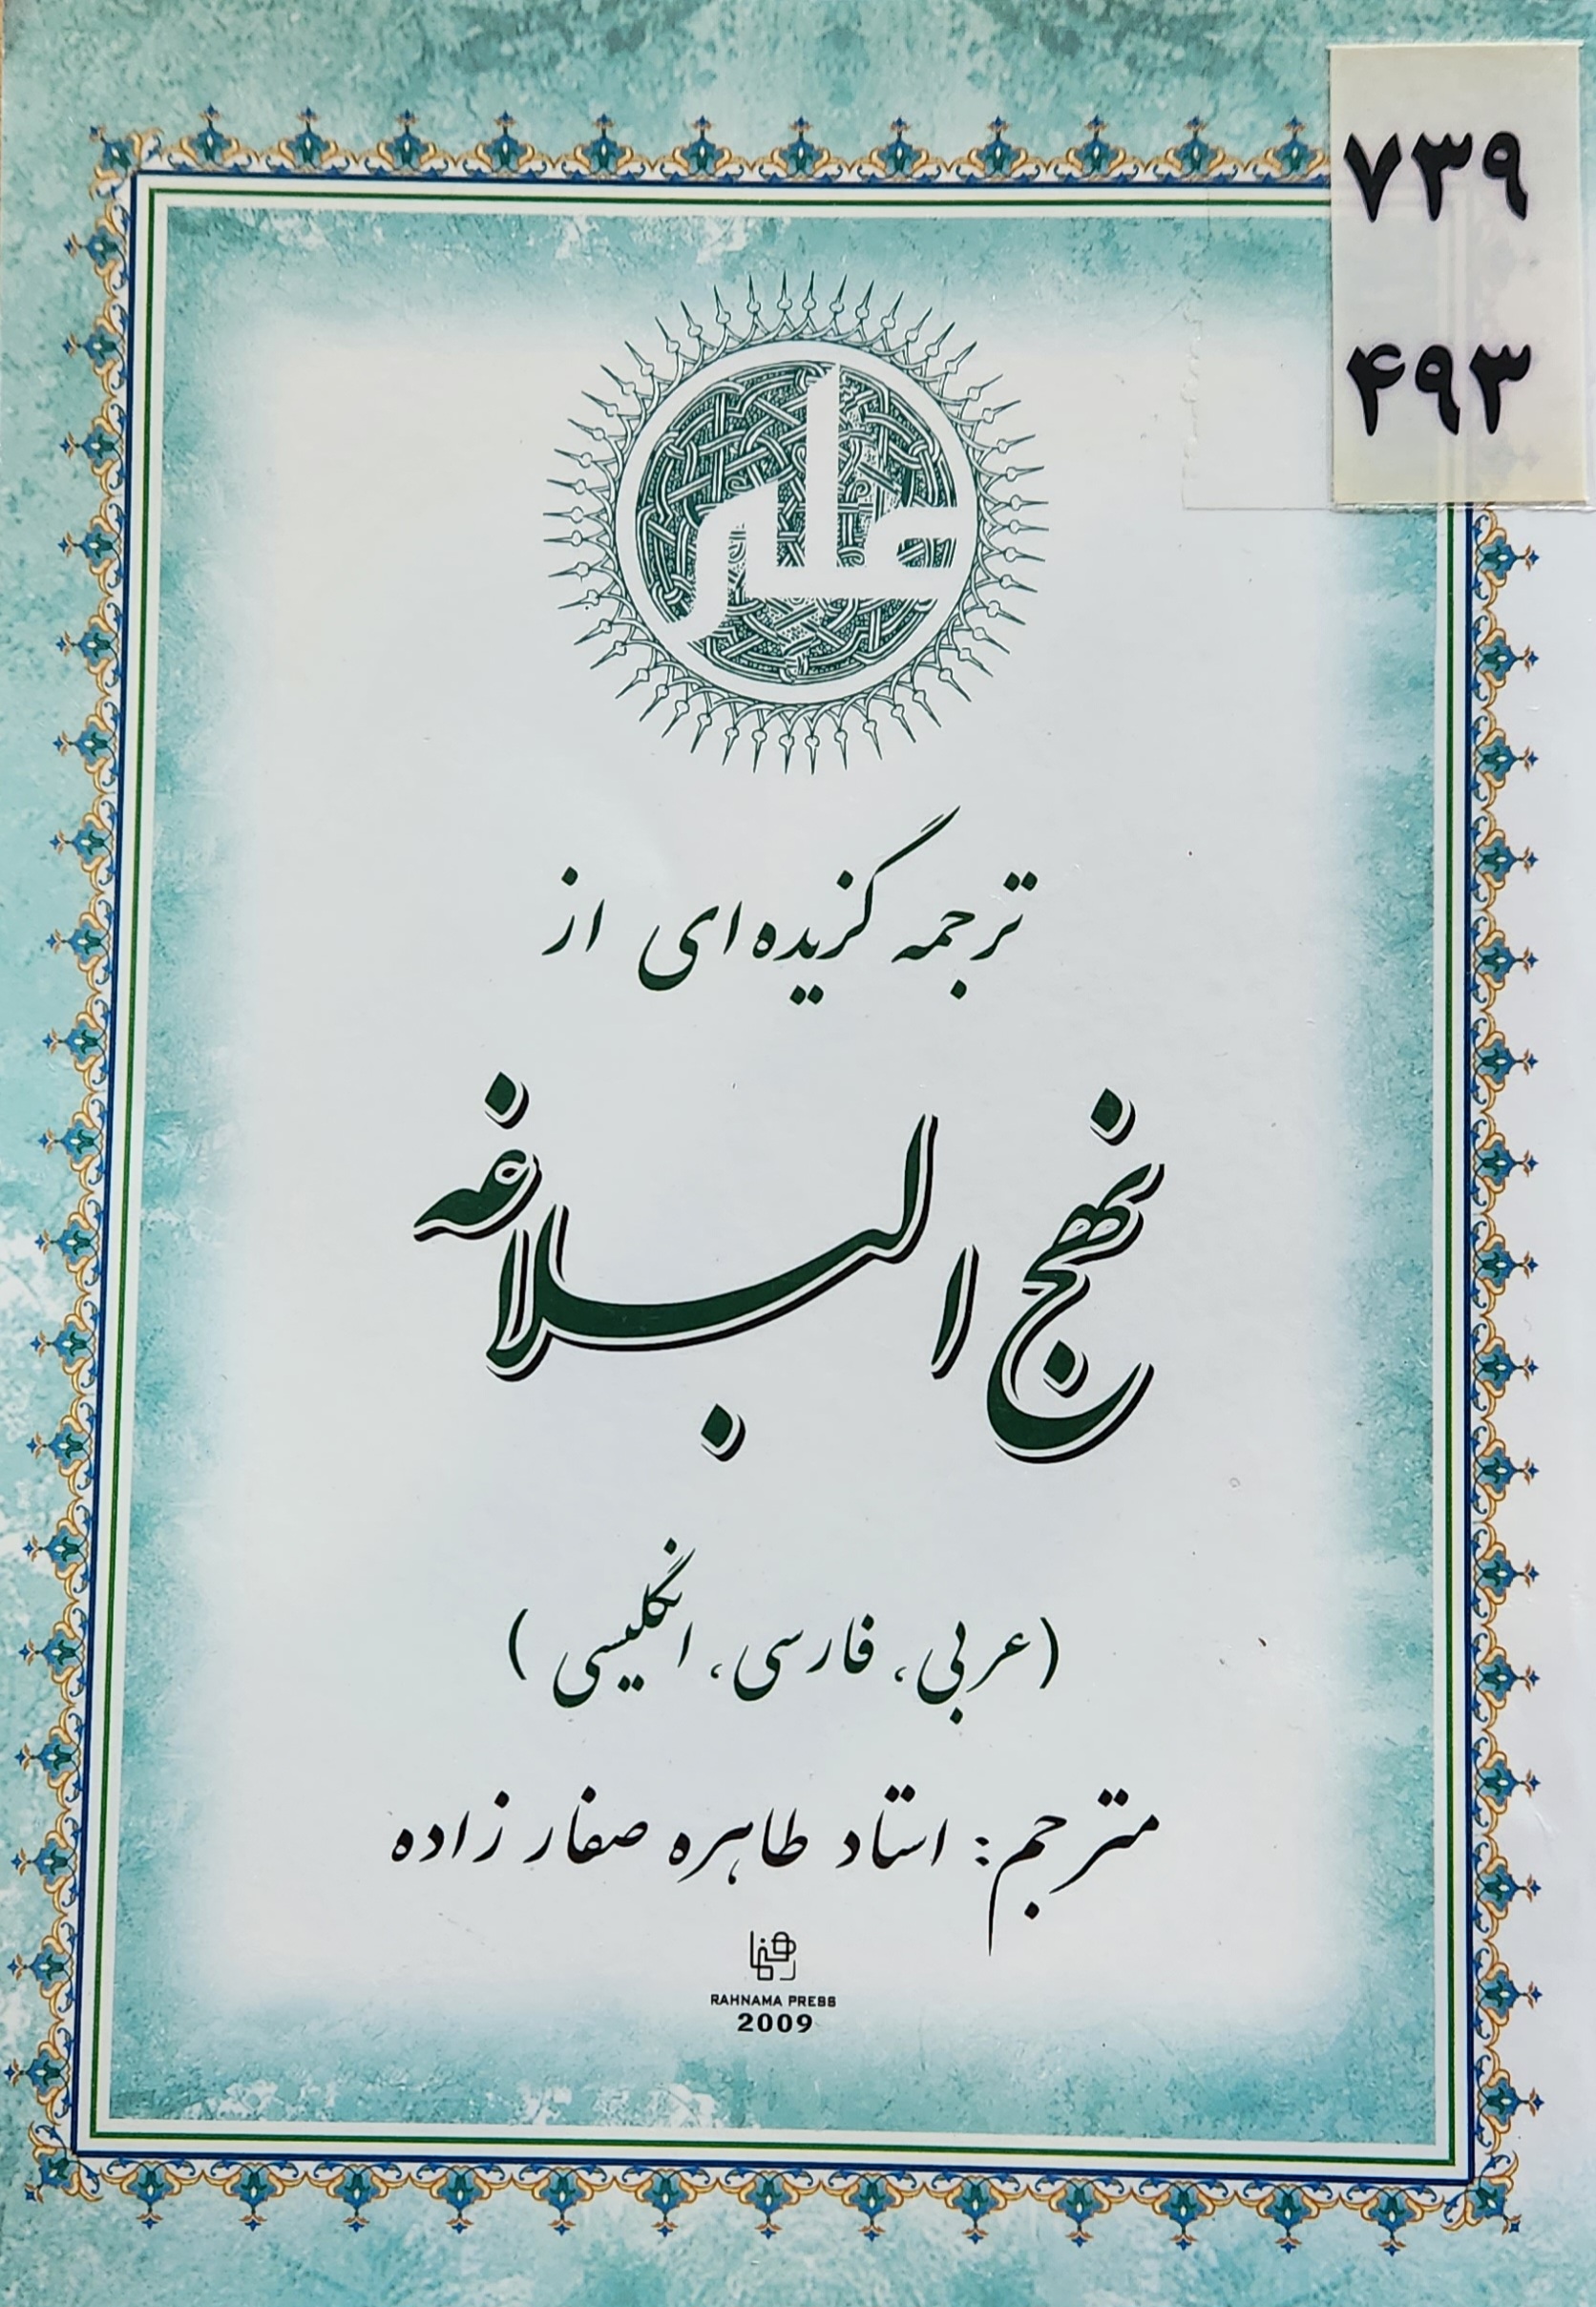 ۷۳۹
۴۹۳
علی
ترجمه گزیده ای از
نهج البلاغه
(عربی، فارسی، انگلیسی)
مترجم: استاد طاهره صفارزاده
رهنما
RAHNAMA PRESS
2009